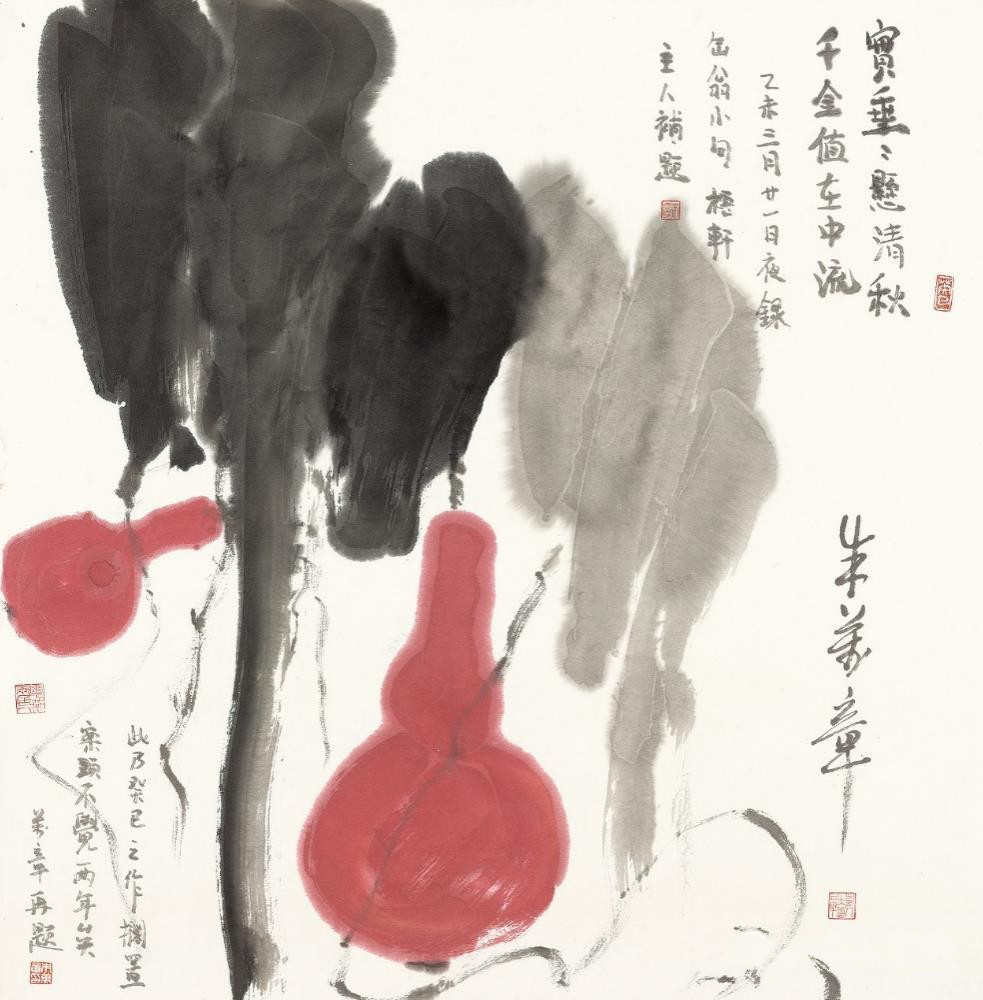 實垂〻懸清秋
千金值在中流
乙未三月廿一日夜録
缶翁小句 梧軒
主人補題
朱萬章
此乃癸巳之作擱置
案頭不覺兩年矣
萬章再題